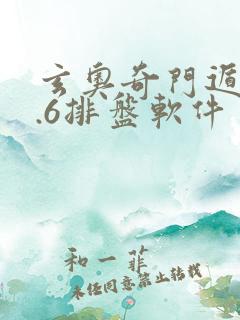 玄奧奇門遁
.6排盤軟件
和一菲
未經同意禁止轉載